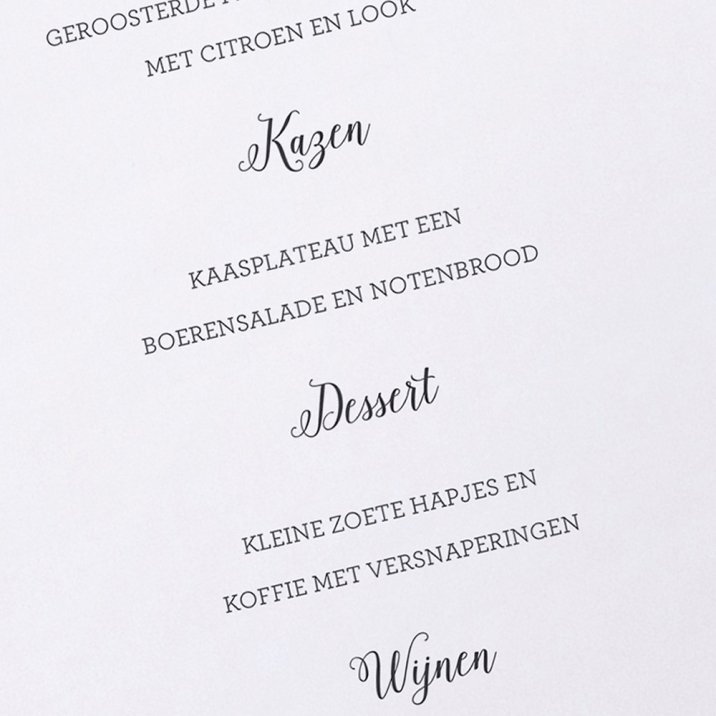 GEROOSTERDE
MET CITROEN EN LOOK
Kazen
KAASPLATEAU MET EEN
BOERENSALADE EN NOTENBROOD
Dessert
KLEINE ZOETE HAPJES EN
KOFFIE MET VERSNAPERINGEN
Wijnen